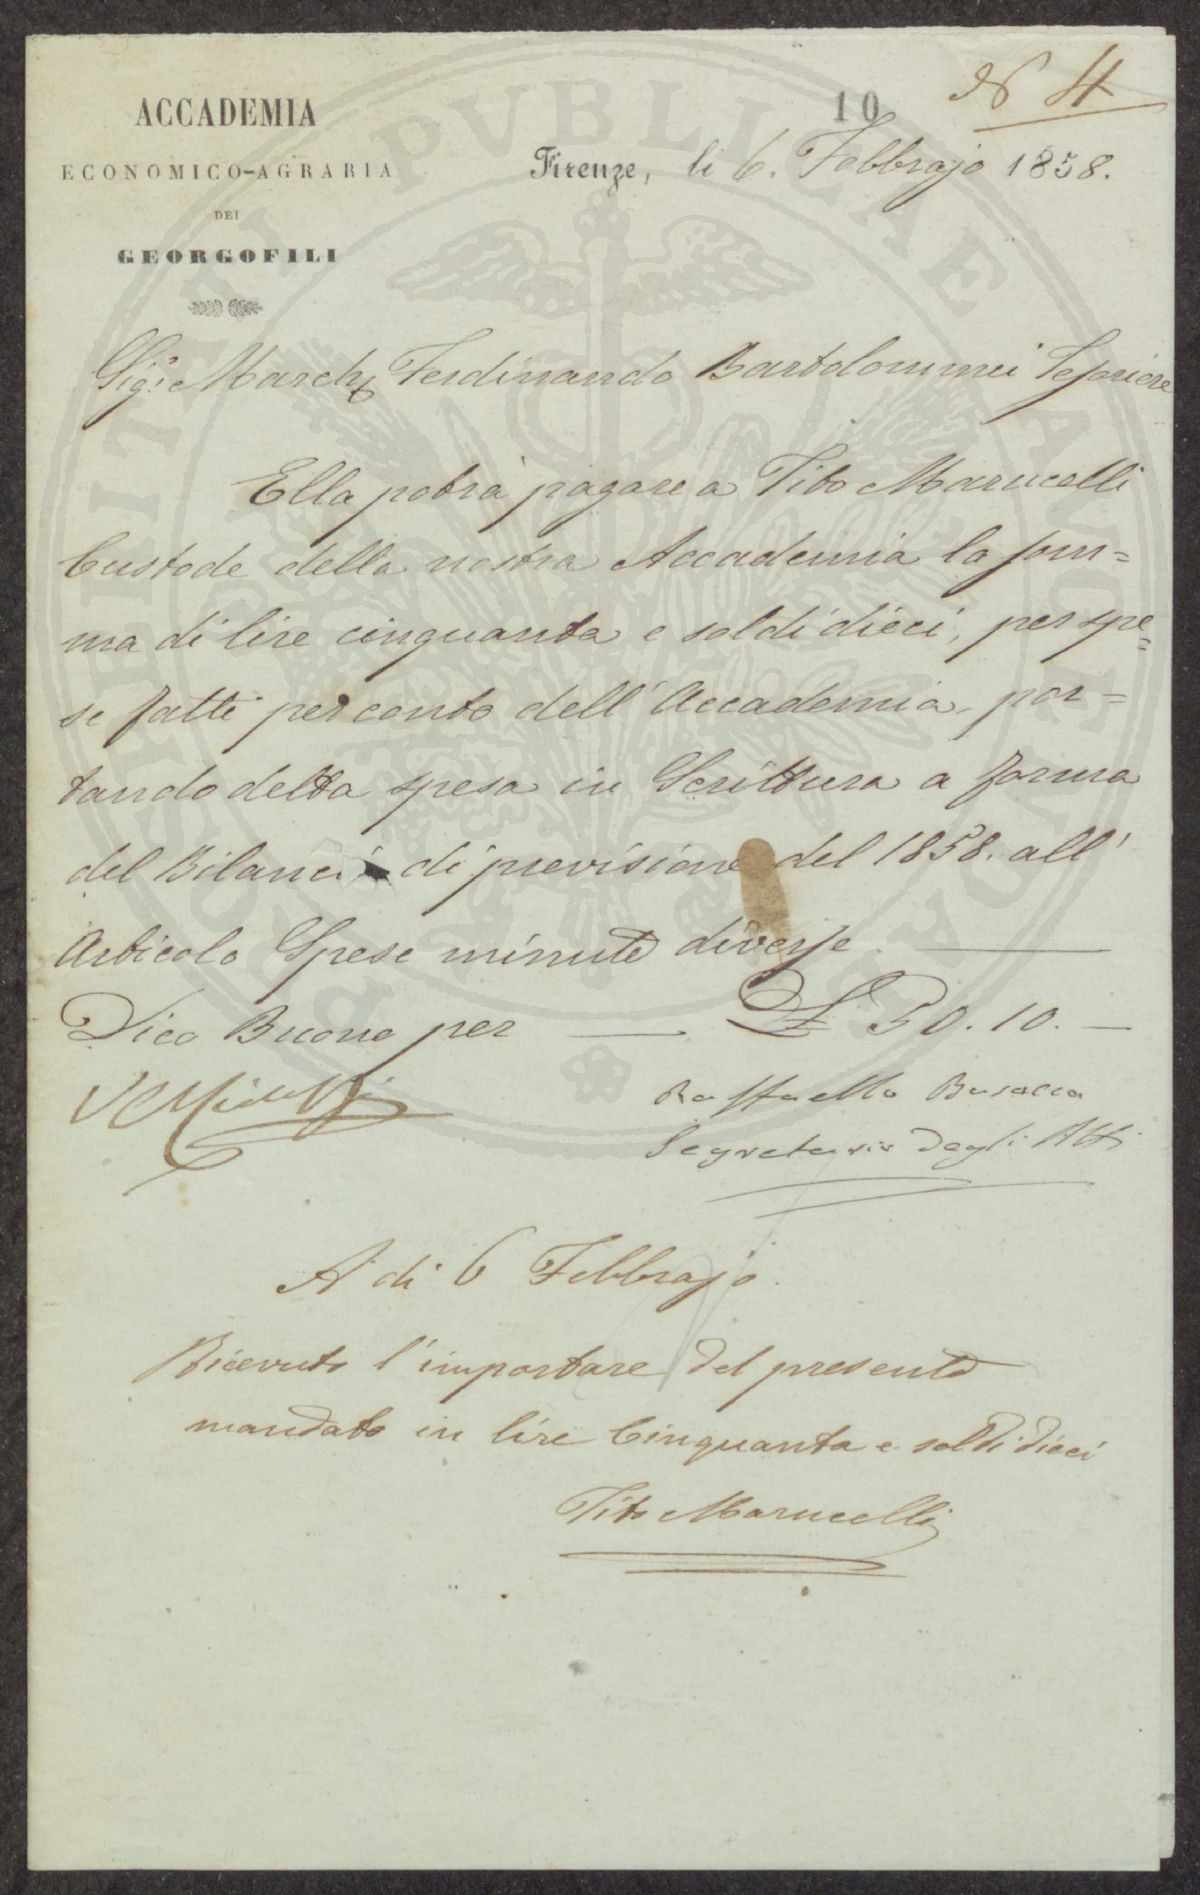 N 4
10
ACCADEMIA
ECONOMICO-AGRARIA
DEI
GEORGOFILI
Firenze, li 6. Febbrajo 1858.
Sig.e March.e Ferdinando Bartolommei Tesoriere
Ella potrà pagare a Tito Marucelli
Custode della nostra Accademia la som=
ma di lire cinquanta e soldi dieci, per spe=
se fatte per conto dell'Accademia, por=
tando detta spesa in Scrittura a forma
del Bilancio di previsione del 1858. all'
Articolo Spese minute diverse
Dico Buono per L 50.10.
Raffaello Busacca
Segretario degli Atti
A dì 6 Febbrajo
Ricevuto l'importare del presente
mandato in lire Cinquanta e soldi dieci
Tito Marucelli
PROSPERITATI PVBLICAE AVGENDAE